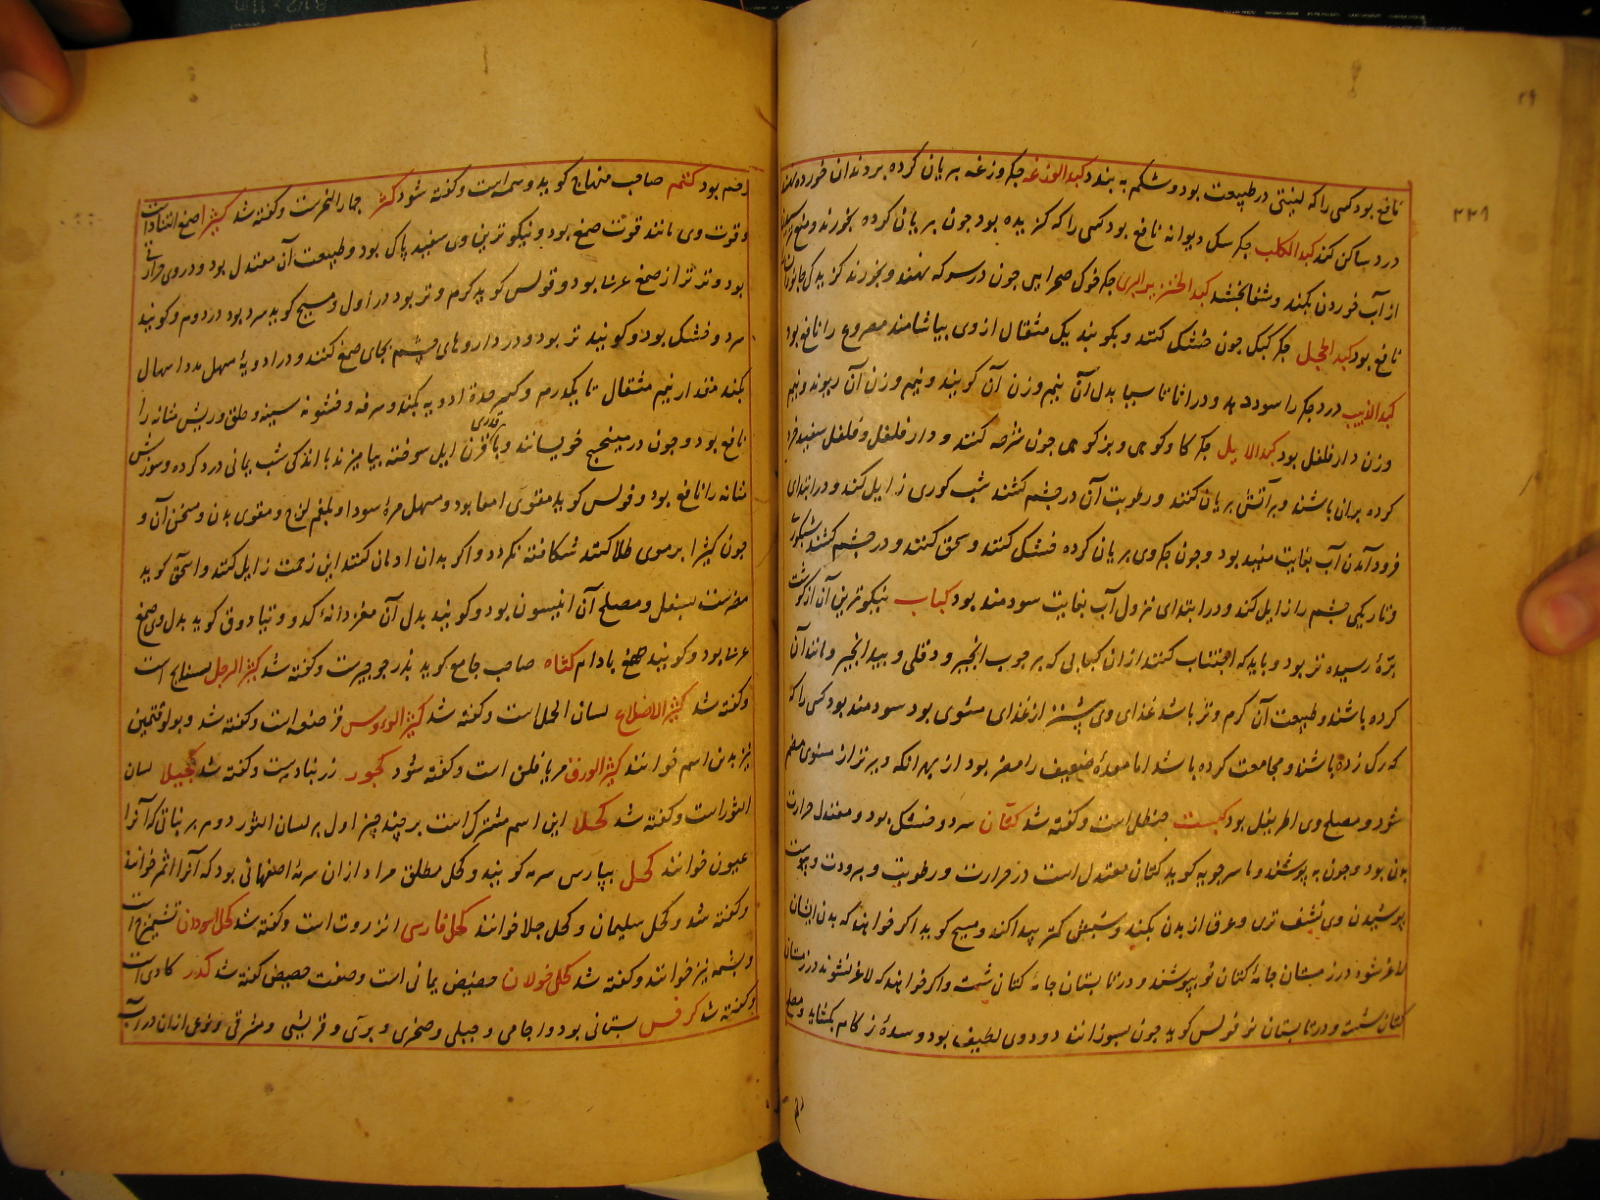 ۲۹
۲۲۹
نافع بود کسی را که لینتی در طبیعت بود و شکم به بندد کبد الوزغه جکر وزغه بریان کرده بر دندان خورده نهند
درد ساکن کند کبد الکلب جکر سک دیوانه نافع بود کسی را که کزیده بود جون بریان کرده بخورند و منع
از آب خوردن بکند و شفا بخشد کبد الخنزیر البری جکر خوک صحرایی جون در سرکه نهند و بخورند کزیدکی جانوران
نافع بود کبد الحجل جکر کبک جون خشک کنند و بکوبند یک مثقال از وی بیاشامند مصروع را نافع بود
کبد الذیب درد جکر را سود دهد و در اناناسیا بدل آن بنیم وزن آن کویند و نیم وزن آن ریوند و نیم
وزن دار فلفل بود کبد الایل جکر کاو کوهی و بز کوهی جون شرحه کنند و دار فلفل و فلفل سفید خرد
کرده بران باشند و بر آتش بریان کنند و رطوبت آن در جشم کشند شب کوری زایل کند و در ابتدای
فرود آمدن آب بغایت مفید بود و جون جکر وی بریان کرده خشک کنند و سحق کنند و در جشم کشند شبکوری
و تاریکی جشم را زایل کند و در ابتدای نزول آب بغایت سودمند بود کباب نیکوترین آن از کوشت
برّهٔ رسیده تر بود و باید که اجتناب کنند از ان کبابی که بر جوب انجیر و دفلی و بید انجیر و مانند آن
کرده باشند و طبیعت آن کرم و تر باشد غذای وی بیشتر از غذای مشوی بود سودمند بود کسی را که
که رک زده باشند و مجامعت کرده باشد اما معدهٔ ضعیف را مضر بود از بهر انکه دیرتر از مشوی هضم
شود و مصلح وی اطریفل بود کبست حنظل است و کفته شد کتان سرد و خشک بود و معتدل حرارت
بون بود و جون به پوشند و ماسرجویه کوید کتان معتدل است در حرارت و رطوبت و برودت و یبوست
پوشیدن وی نشف تری و عرق از بدن بکند و شبش کمتر پیدا کند و مسیح کوید اکر خواهند که بدن ایشان
لاغر شود در زمستان جامهٔ کتان نو بپوشند و در تابستان جامهٔ کتان شسته و اکر خواهند که لاغر نشوند در زمستان
کتان شسته و در تابستان نو فولس کوید جون بسوزانند دود وی لطیف بود و سدهٔ زکام بکشاید و مصلح
رحم بود کتمه صاحب منهاج کوید وسمه است و کفته شود کثر جمار النخر ست و کفته شد کثیرا صمغ القتاد است
و قوت وی مانند قوت صمغ بود و نیکوترین وی سفید پاک بود و طبیعت آن معتدل بود و در وی حرارتی
بود و تر تر از صمغ عربی بود و فولس کوید کرم و تر بود در اول و مسیح کوید سرد بود در دوم و کویند
سرد و خشک بود و کویند تر بود و در داروهای جشم بجای صمغ کنند و در ادویهٔ مسهل مدد اسهال
بکند مقدار نیم مثقال تا یکدرم و کسر حدة ادویه بکند و سرفه و خشونه سینه و حلق و ریش مثانه را
نافع بود و جون در میبختج خویسانند و با قدری قرن ایل سوخته بیامیزند با اندکی شب یمانی درد کرده و سوزش
مثانه را نافع بود و فولس کوید مقوی امعا بود و مسهل مرهٔ سودا و بلغم لزج و مقوی بدن و مسخن آن و
جون کثیرا بر موی طلا کنند شکافته نکردد و اکر بدان ادمان کنند این زحمت زایل کند و اسحق کوید
مضرست بسفل و مصلح آن انیسون بود و کویند بدل آن مغز دانهٔ کدو و تیادوق کوید بدل وی صمغ
عربی بود و کویند صمغ بادام کثاه صاحب جامع کوید بذر جرجیرست و کفته شد کثیر الرجل بسفایج است
و کفته شد کثیر الاضلاع لسان الحمل است و کفته شد کثیر الروس قرصعنه است و کفته شد و بولوقنمین
نیز بدین اسم خوانند کثیر الورق مریافلن است و کفته شود کجور زرنبادست و کفته شد کحیلا لسان
الثور است و کفته شد کحلا این اسم مشترک است بر چند چیز اول بر لسان الثور دوم بر نباتی که آنرا
عیون خوانند کحل بپارسی سرمه کویند و کحل مطلق مراد از ان سرمهٔ اصفهانی بود که آنرا اثمد خوانند
و کفته شد و کحل سلیمان و کحل جلا خوانند کحل فارسی انزروت است و کفته شد کحل السودان تشمیزج است
و بشمه نیز خوانند و کفته شد کحل خولان حضیض یمانی است و صفت حضیض کفته شد کدر کادی است
و کفته شد کرفس بستانی بود و اجامی و جبلی و صخری و بری و قریشی و مشرقی و نوعی از ان در آب